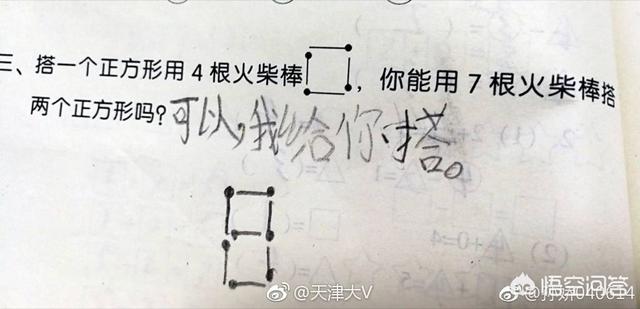 三、搭一个正方形用4根火柴棒 ，你能用7根火柴棒搭
两个正方形吗?可以,我给你搭。
@天津大V
悟空问答